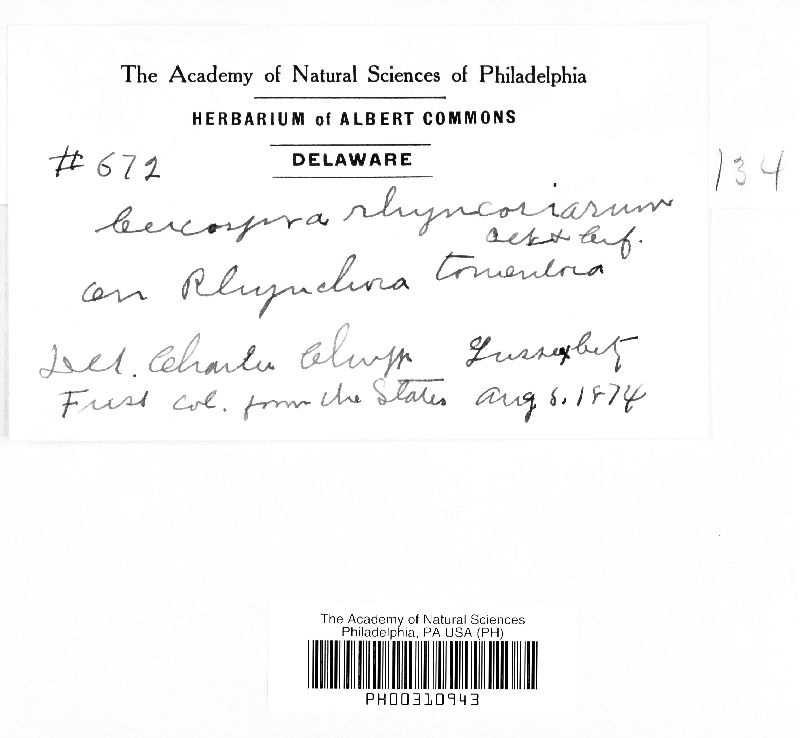 The Academy of Natural Sciences of Philadelphia
HERBARIUM of ALBERT COMMONS
DELAWARE
# 672
134
Cercospora rhyncosiarum
on Rhynchosia tomentosa
Det. Charles Chupp
First col. from the States Aug 8. 1874
The Academy of Natural Sciences
Philadelphia, PA USA (PH)
PH00310943